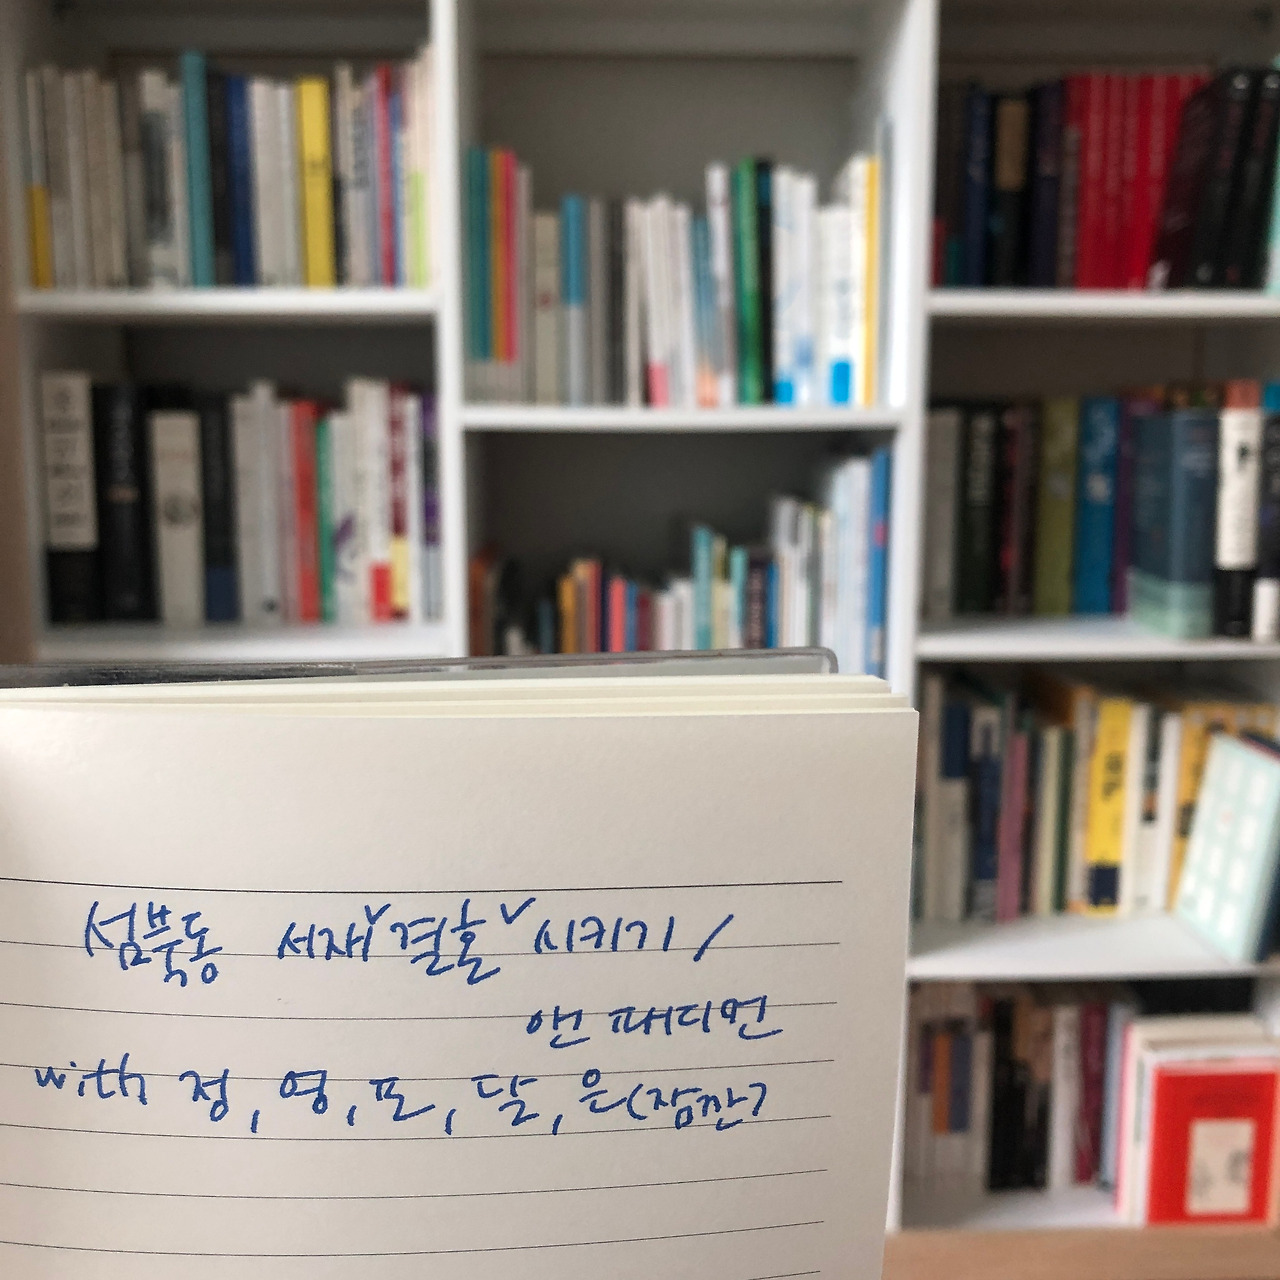 섬북동 서재⌵결혼⌵시키기 /
앤 패디먼
with 정, 영, 표, 달, 은(잠깐?